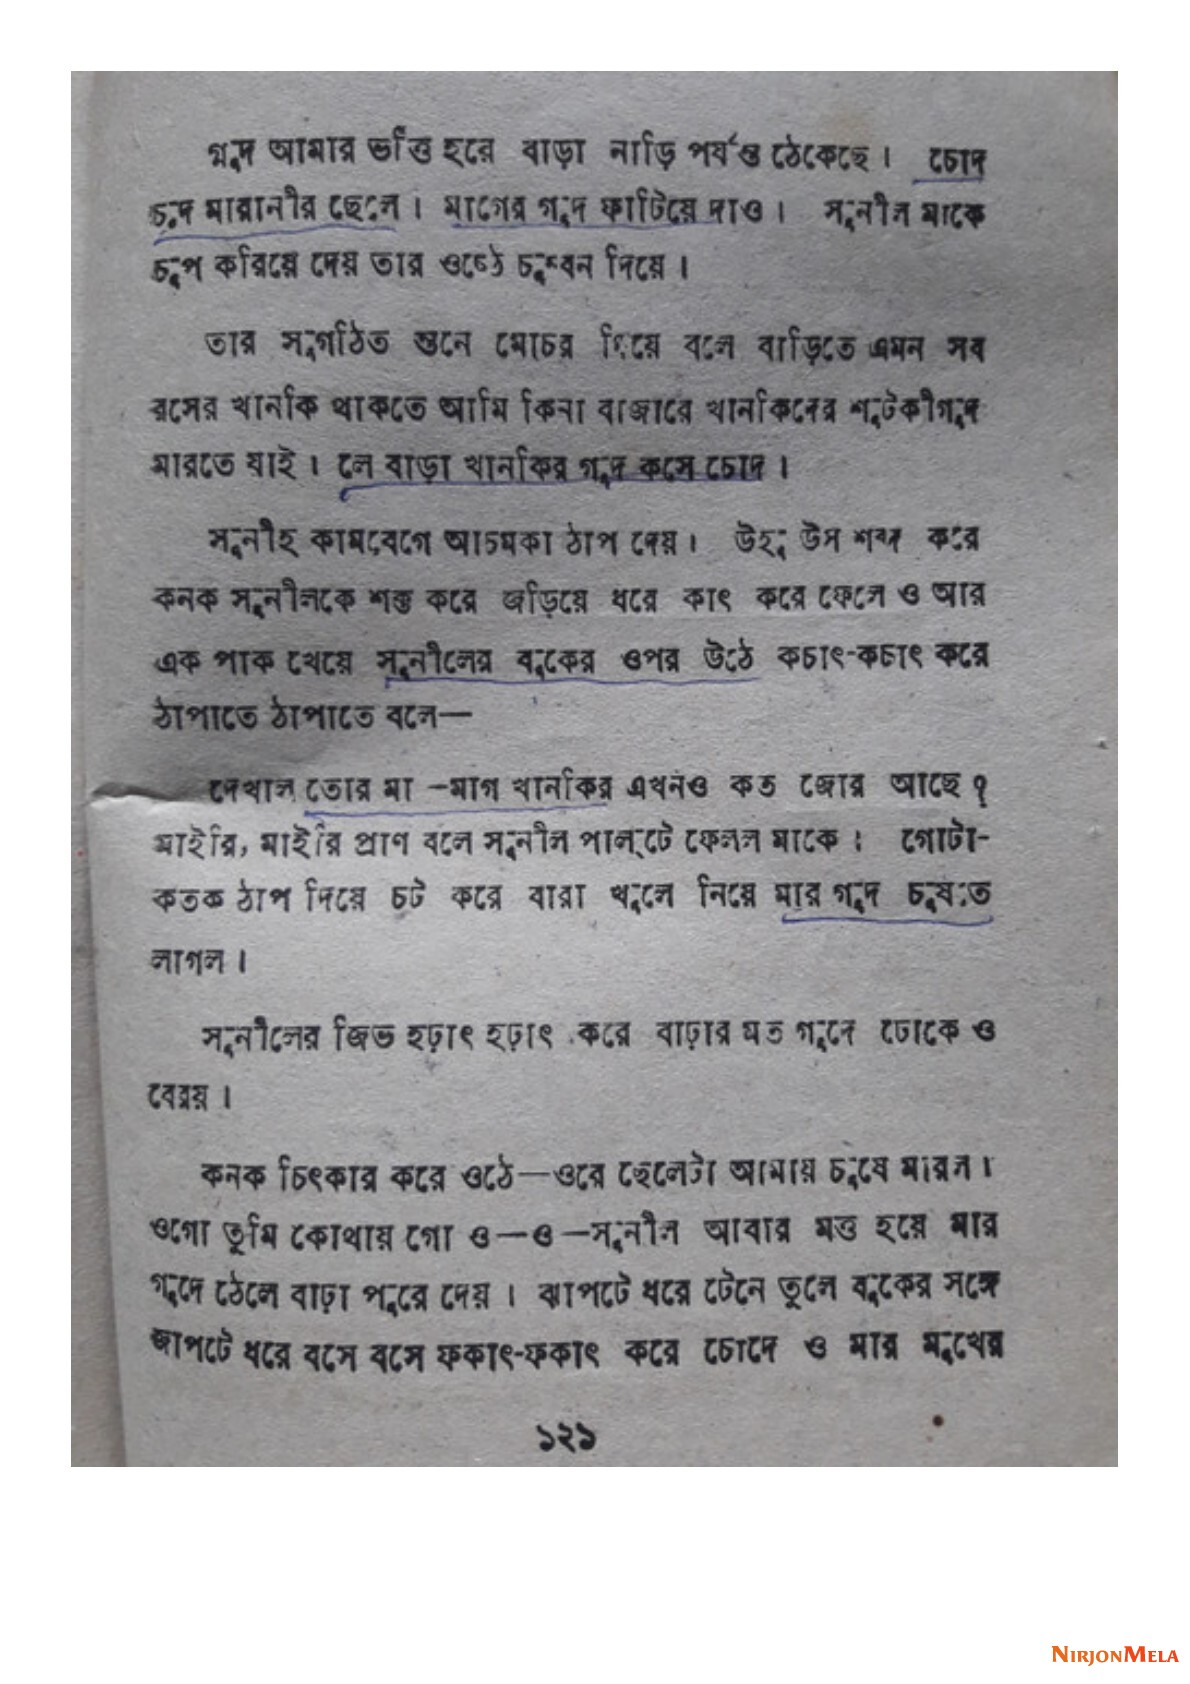 গুদ আমার ভর্ত্তি হয়ে বাড়া নাড়ি পর্যন্ত ঠেকেছে। চোদ
চুদ মারানীর ছেলে। মাগের গুদ ফাটিয়ে দাও। সুনীল মাকে
চুপ করিয়ে দেয় তার ওষ্ঠে চুম্বন দিয়ে।
তার সুগঠিত স্তনে মোচর দিয়ে বলে বাড়িতে এমন সব
রসের খানকি থাকতে আমি কিনা বাজারে খানকিদের শুটকীগুদ
মারতে যাই। লে বাড়া খানকির গুদ কসে চোদ।
সুনীহ কামবেগে আচমকা ঠাপ দেয়। উহু উস শব্দ করে
কনক সুনীলকে শক্ত করে জড়িয়ে ধরে কাৎ করে ফেলে ও আর
এক পাক খেয়ে সুনীলের বুকের ওপর উঠে কচাৎ-কচাৎ করে
ঠাপাতে ঠাপাতে বলে—
দেখলি তোর মা -মাগ খানকির এখনও কত জোর আছে?
মাইরি, মাইরি প্রাণ বলে সুনীল পাল্টে ফেলল মাকে। গোটা-
কতক ঠাপ দিয়ে চট করে বারা খুলে নিয়ে মার গুদ চুষতে
লাগল।
সুনীলের জিভ হঢ়াৎ হঢ়াৎ করে বাঢ়ার মত গুদে ঢোকে ও
বেরয়।
কনক চিৎকার করে ওঠে—ওরে ছেলেটা আমায় চুষে মারল।
ওগো তুমি কোথায় গো ও—ও—সুনীল আবার মত্ত হয়ে মার
গুদে ঠেলে বাঢ়া পুরে দেয়। ঝাপটে ধরে টেনে তুলে বুকের সঙ্গে
জাপটে ধরে বসে বসে ফকাৎ-ফকাৎ করে চোদে ও মার মুখের
১২১
NIRJONMELA